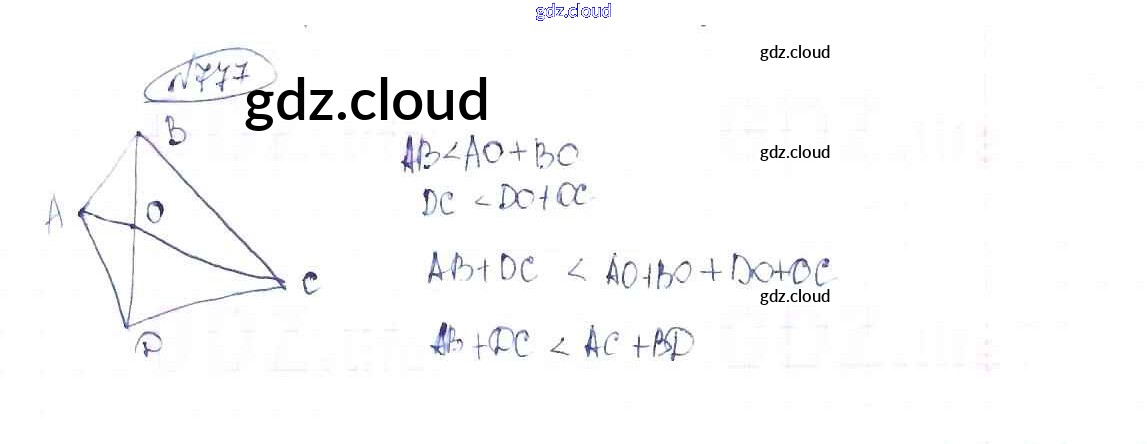 gdz.cloud
gdz.cloud
N777
gdz.cloud
B
AB<AO+BO
gdz.cloud
A
O
DC <DO+OC
AB+DC < AO+BO+DO+OC
C
gdz.cloud
D
AB+DC < AC+BD